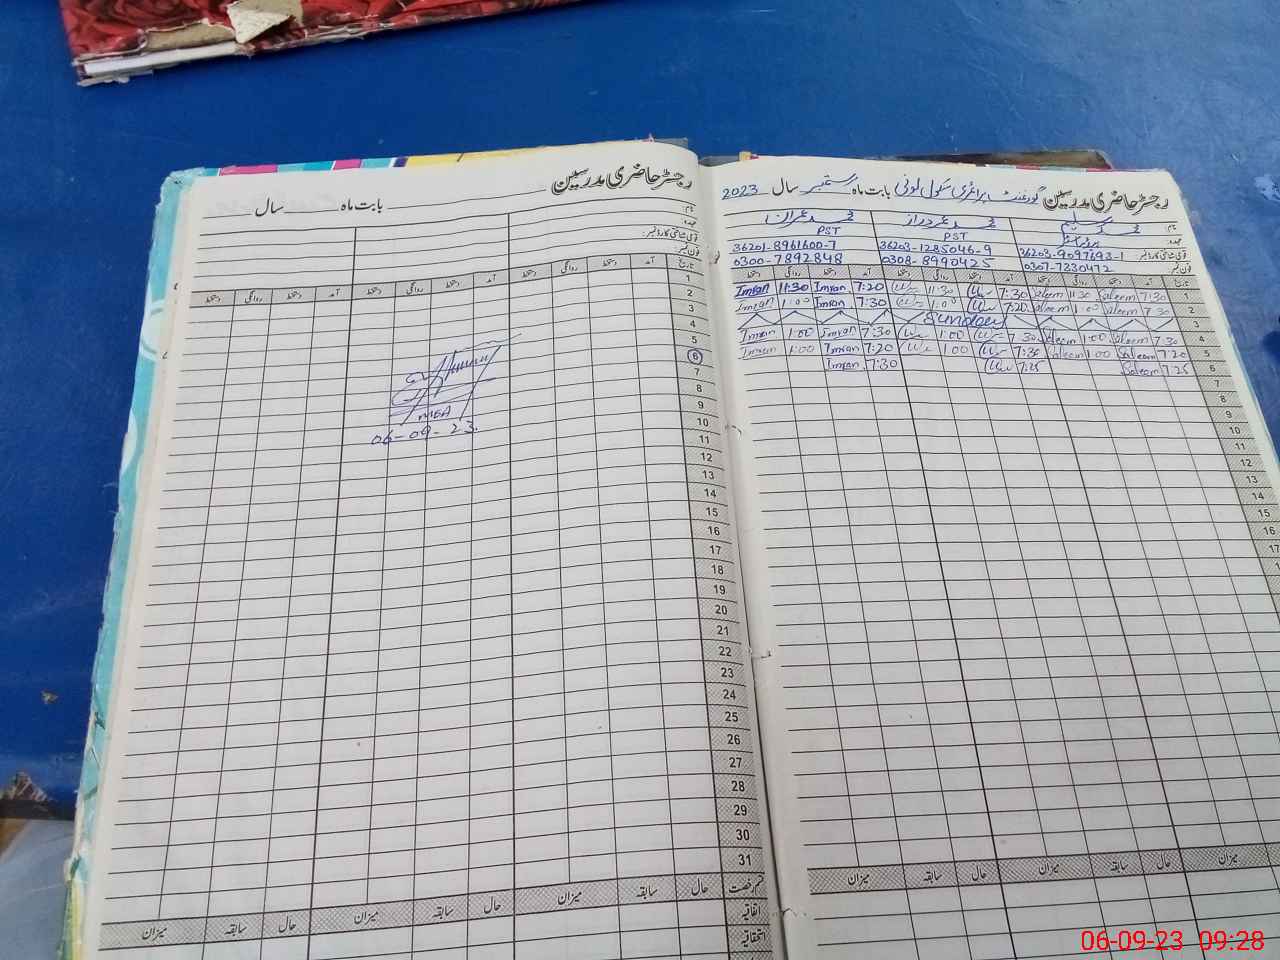 رجسٹر حاضری مدرسین
بابت ماہ سال
نام:
عہدہ:
قومی شناختی کارڈ نمبر:
فون نمبر:
تاریخ آمد دستخط روانگی دستخط آمد دستخط روانگی دستخط آمد دستخط روانگی دستخط
1
2
3
4
5
6
7
8
9
10
11
12
13
14
15
16
17
18
19
20
21
22
23
24
25
26
27
28
29
30
31
MEA
06-09-23.
قسم رخصت حال سابقہ میزان حال سابقہ میزان حال سابقہ میزان
اتفاقیہ
استحقاقیہ
رجسٹر حاضری مدرسین گورنمنٹ پرائمری سکول لوئی بابت ماہ ستمبر سال 2023
نام: محمد سلیم محمد عمر دراز محمد عمران
عہدہ: PST PST
قومی شناختی کارڈ نمبر: 36203-9097693-1 36203-1285046-9 36201-8961600-7
فون نمبر: 0307-7330472 0308-8990425 0300-7892848
تاریخ آمد دستخط روانگی دستخط آمد دستخط روانگی دستخط آمد دستخط روانگی دستخط
1 7:30 Saleem 11:30 Saleem 7:30 11:30 7:20 Imran 11:30 Imran
2 7:30 Saleem 1:00 Saleem 7:20 1:00 7:30 Imran 1:00 Imran
3 Sunday
4 7:30 Saleem 1:00 Saleem 7:30 1:00 7:30 Imran 1:00 Imran
5 7:20 Saleem 1:00 Saleem 7:30 1:00 7:20 Imran 1:00 Imran
6 7:25 Saleem 7:25 7:30 Imran
7
8
9
10
11
12
13
14
15
16
17
حال سابقہ میزان حال سابقہ میزان
میزان
06-09-23 09:28